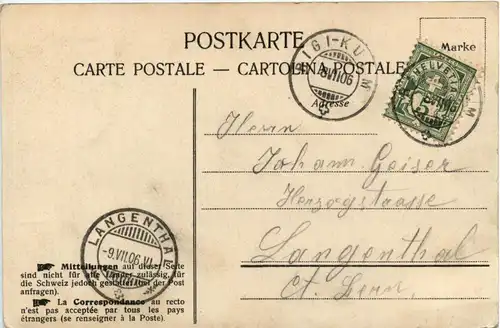 POSTKARTE
Marke
CARTE POSTALE — CARTOLINA POSTALE
RIGI-KULM
8.VII.06
HELVETIA
Adresse
Herrn
Johann Geiser
Herzogstrasse
Langenthal
Ct. Bern
LANGENTHAL
-9.VII.06.VI
Mitteilungen auf dieser Seite
sind nicht für alle Länder zulässig, für
die Schweiz jedoch gestattet (bei der Post
anfragen).
La Correspondance au recto
n'est pas acceptée par tous les pays
étrangers (se renseigner à la Poste).